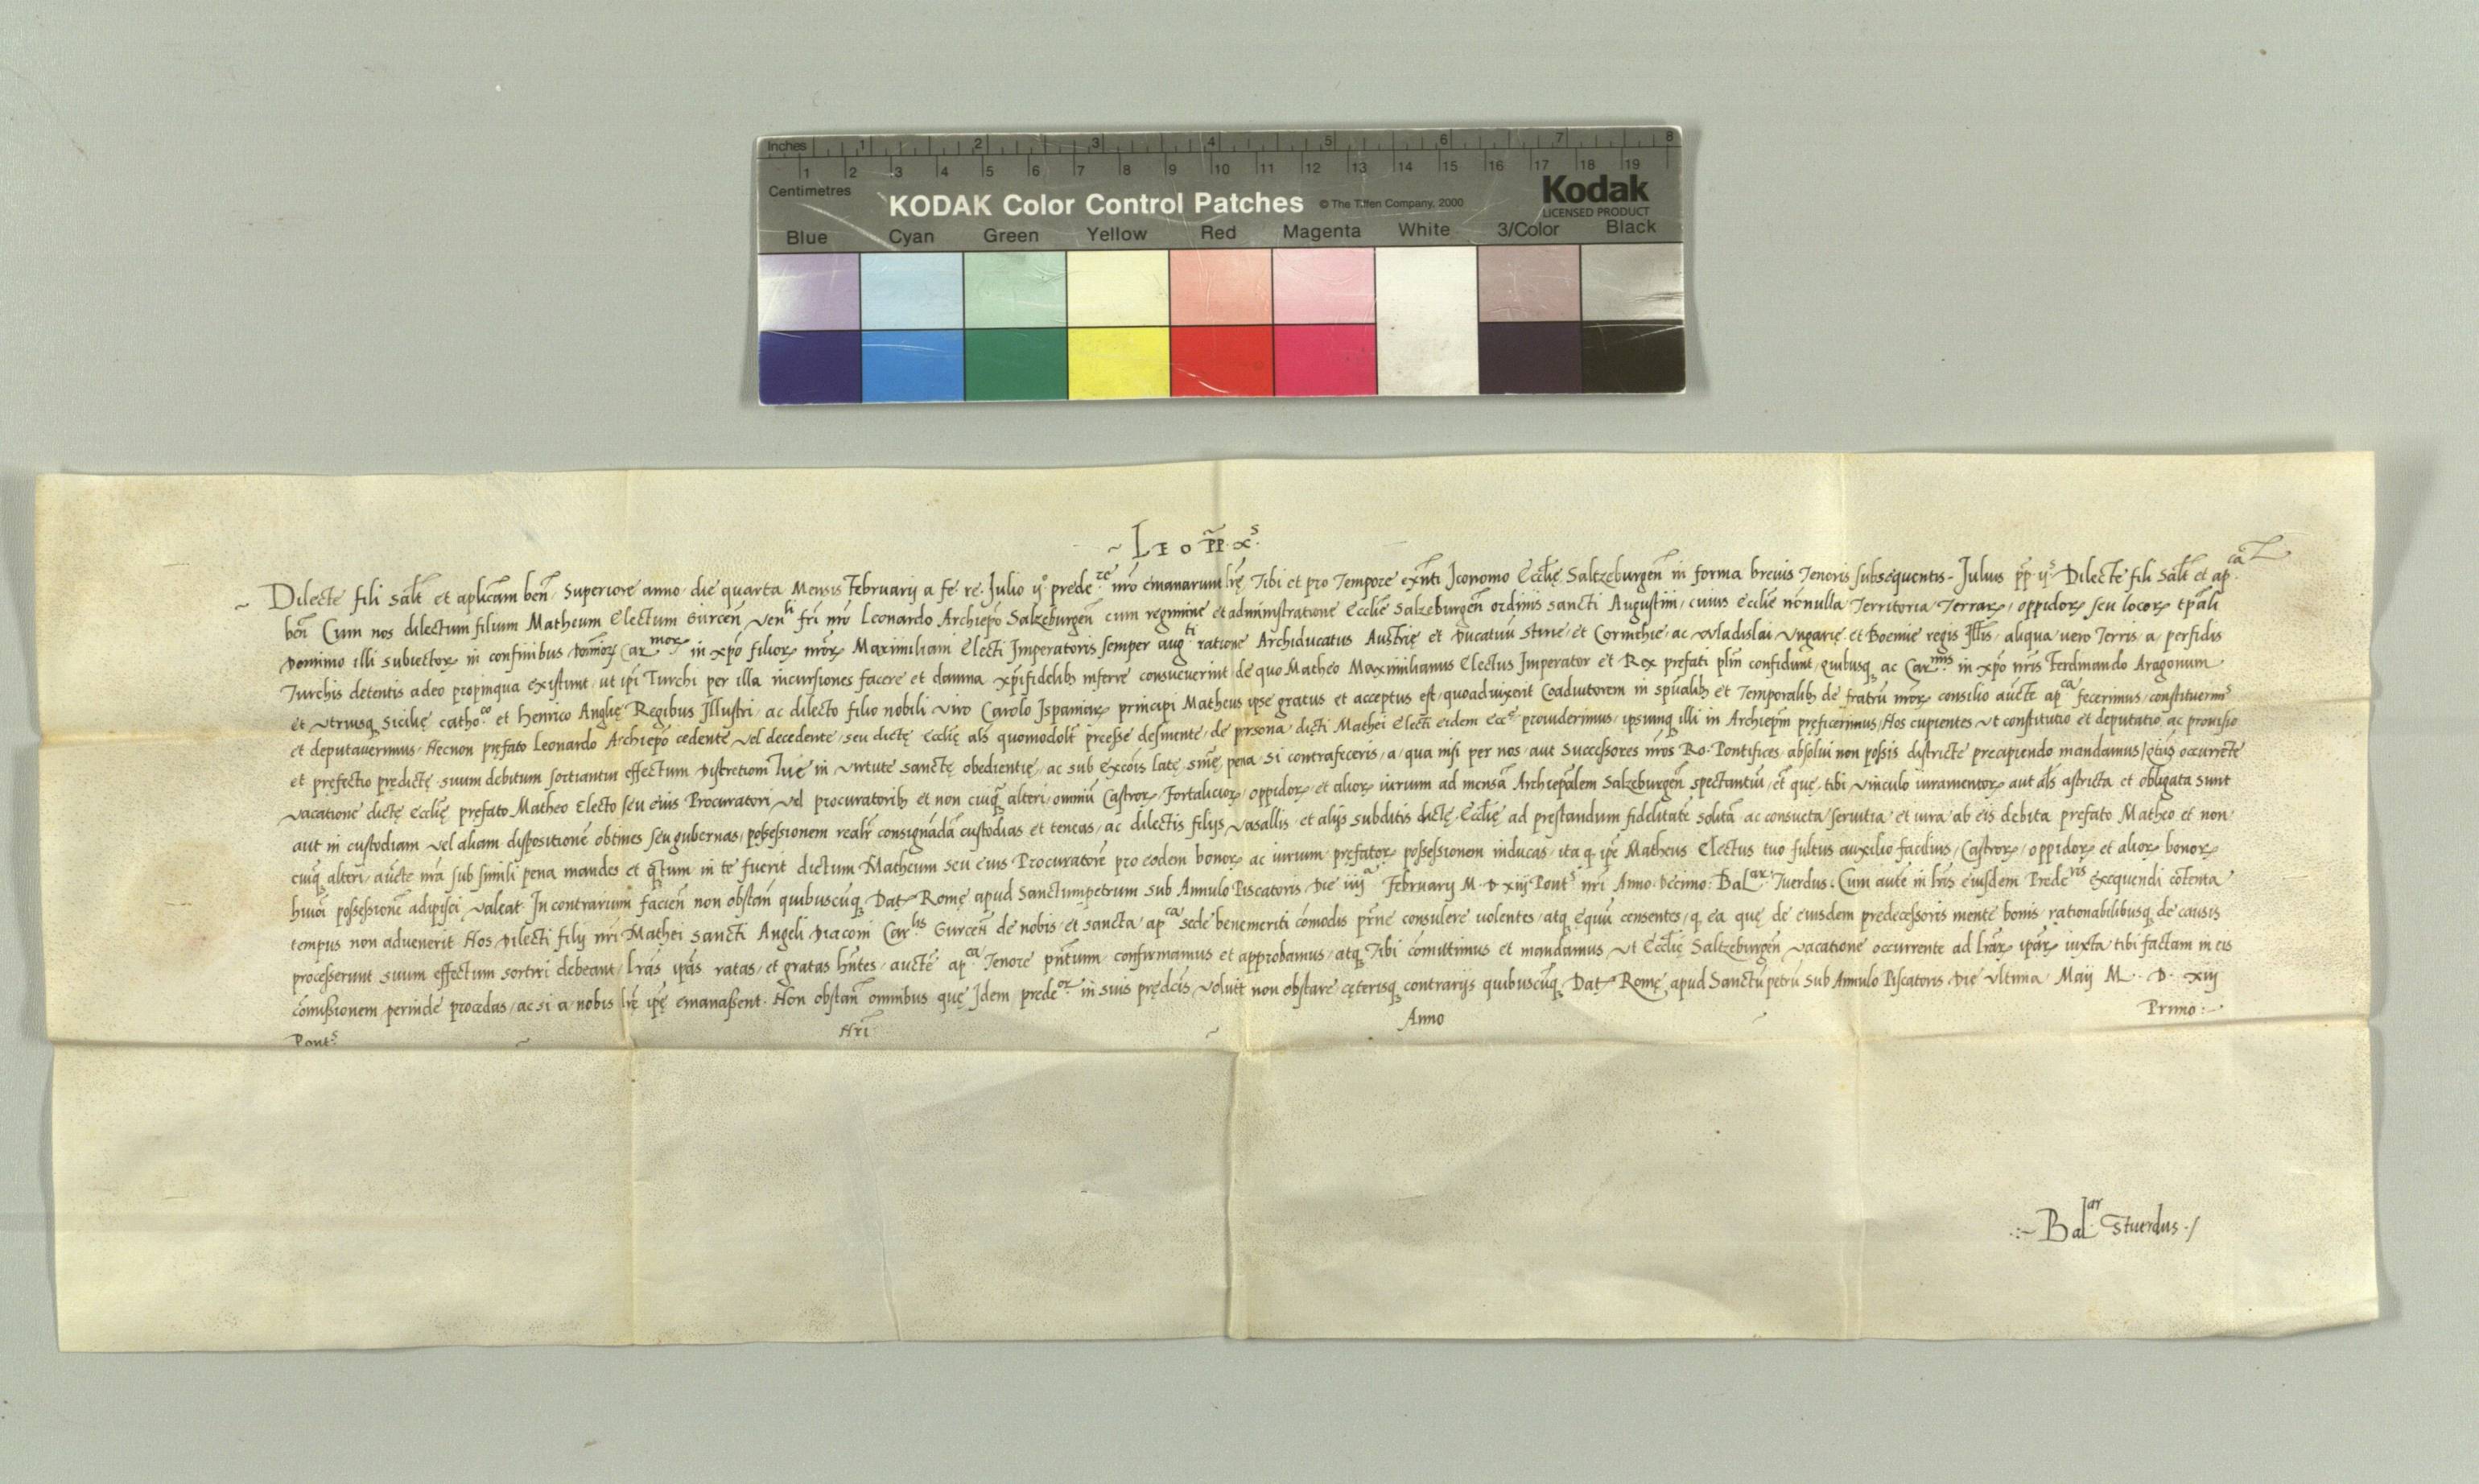 Inches 1 2 3 4 5 6 7 8
1 2 3 4 5 6 7 8 9 10 11 12 13 14 15 16 17 18 19
Centimetres
KODAK Color Control Patches © The Tiffen Company, 2000 Kodak
LICENSED PRODUCT
Blue Cyan Green Yellow Red Magenta White 3/Color Black
Leo p̄p. xs.
Dilecte fili salt̄ et aplicam ben̄. Superiore anno die quarta Mensis Februarij a fe. re. Julio ijo predere nr̄o emanarunt lrē, Tibi et pro Tempore exn̄ti Iconomo Ecclīę Saltzeburgen̄ in forma brevis Tenoris subsequentis. Julius p̄p. ijs Dilecte fili salt̄ et apcā
ben̄ Cum nos dilectum filium Matheum Electum Gurcen̄ Venli frī nr̄o Leonardo Archiepō Salzeburgen̄ cum regimine et administratione Ecclīę Salzeburgen̄ ordinis sancti Augustini, cuius ecclīę nonnulla Territoria, Terrarꝝ, oppidorꝝ seu locorꝝ tpāli
Dominio illi subiectorꝝ in confinibus Carmorꝝ in xpō filiorꝝ nrōrꝝ Maximiliani Electi Imperatoris semper augti ratione Archiducatus Austrię et Ducatuū Stirie et Corinthie, ac Vladislai Vngarię et Boemie regis Illīs, aliqua vero Terris a perfidis
Turchis detentis adeo propinqua existunt, ut ipī Turchi per illa incursiones facere et damna xpīfidelibꝫ inferre consueverint de quo Matheo Maximilianus Electus Imperator et Rex prefati plīn confidunt, quibusqꝫ ac Carmis in xpō nrīs Ferdinando Aragonum
et utriusqꝫ Sicilię cathoco et Henrico Anglię Regibus Illustri, ac dilecto filio nobili viro Carolo Ispaniarꝝ principi Matheus ipse gratus et acceptus est, quoad vixerit Coadiutorem in spūalibꝫ et Temporalibꝫ de fratrū nrōrꝝ consilio aucte apca fecerimus, constituerims
et deputaverimus. Necnon prefato Leonardo Archiepō cedente vel decedente, seu dictę Ecclīę als̄ quomodolt̄ preesse desinente, de persona dicti Mathei Electi eidem Ecce providerimus, ipsumqꝫ illi in Archiepm̄ prefecerimus, Nos cupientes ut constitutio et deputatio, ac provisio
et prefectio predictę suum debitum sortiantur effectum Discretioni Tue in virtute sanctę obedientię, ac sub excōis latę, sn̄ię, pena, si contrafeceris, a qua nisi per nos aut Successores nrōs Ro. Pontifices absolui non possis districte precipiendo mandamus, occurrēte
vacatione dictę Ecclīę prefato Matheo Electo seu eius Procuratori vel procuratoribꝫ et non cuiqꝫ alteri, omniū Castrorꝝ, Fortaliciorꝝ, oppidorꝝ et aliorꝝ iurium ad mensā Archiepālem Salzeburgen̄ spectantiū, et que, tibi vinculo iuramentorꝝ aut als̄ astricta et obligata sunt
aut in custodiam vel aliam dispositionē obtines seu gubernas, possessionem realr̄ consignādā custodias et teneas, ac dilectis filijs vasallis et alijs subditis dictę Ecclīę ad prestandum fidelitatē solitā ac consueta servitia et iura ab eis debita prefato Matheo et non
cuiqꝫ alteri, aucte nrā sub simili pena mandes et qtum in te fuerit dictum Matheum seu eius Procuratorē pro eodem bonorꝝ ac iurium prefatorꝝ possessionem inducas, ita q ipē Matheus Electus tuo fultus auxilio facilius, Castrorꝝ, oppidorꝝ et aliorꝝ bonorꝝ
huōi possessionē adipisci valeat. In contrarium facien̄ non obstan̄ quibuscūqꝫ Dat. Romę apud Sanctumpetrum sub Annulo Piscatoris Die iiija Februarij M. D. xiij Ponts nrī Anno Decimo. Balar Tuerdus. Cum autē in lrīs eiusdem Prederis exequendi cōtenta
tempus non advenerit. Nos Dilecti filij nrī Mathei Sancti Angeli Diaconi Carlis Gurcen̄ de nobis et sancta apca sede benemeriti cōmodis prn̄e consulere volentes, atqꝫ equū censentes, q ea que de eiusdem predecessoris mente bonis rationabilibusqꝫ de causis
processerunt suum effectum sortiri debeant, lrās ipās ratas, et gratas hn̄tes, aucte apca Tenore pn̄tium confirmamus et approbamus, atqꝫ Tibi cōmittimus et mandamus ut Ecclīę Saltzeburgen̄ vacatione occurrente ad lrārꝝ ipārꝝ iuxta tibi factam in eis
cōmissionem perinde procedas, ac si a nobis lrē ipę emanassent. Non obstan̄ omnibus quę Idem predeor in suis prędcīs voluit non obstare cęterisqꝫ contrarijs quibuscūqꝫ Dat. Romę apud Sanctū petrū Sub Annulo Piscatoris Die Ultima Maij M. D. xiij
Ponts. Nrī Anno Primo.
Balar Stuerdus